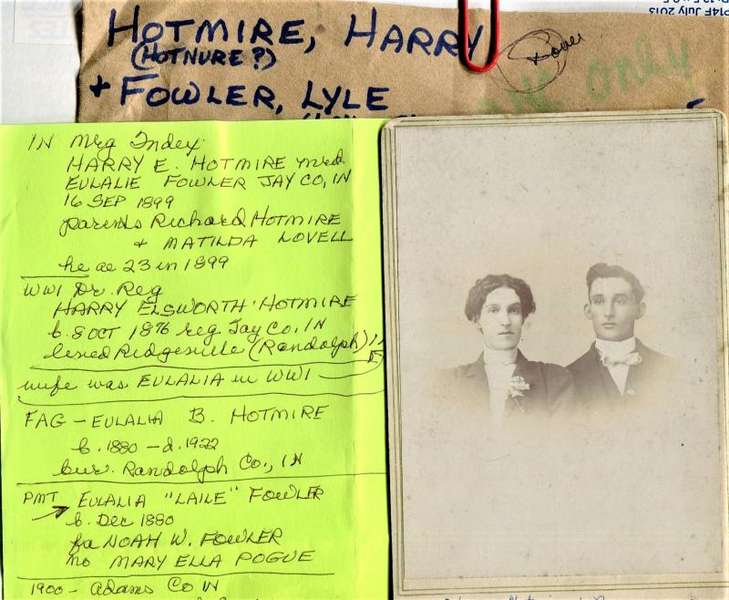 P14F July 2013
HOTMIRE, HARRY
(HOTNURE?)
+ FOWLER, LYLE
Dover
only
IN Mrg Index
HARRY E. HOTMIRE mrd
EULALIE FOWLER JAY CO, IN
16 SEP 1899
parents Richard HOTMIRE
+ MATILDA LOVELL
he ae 23 in 1899
WWI Dr. Reg
HARRY ELSWORTH HOTMIRE
b. 8 OCT 1876 reg Jay Co, IN
lived Ridgeville (Randolph) IN
wife was EULALIA in WWI
FAG - EULALIA B. HOTMIRE
b. 1880 - d. 1922
bur. Randolph Co., IN
PMT EULALIA "LAILE" FOWLER
b. Dec 1880
fa NOAH W. FOWLER
mo MARY ELLA POGUE
1900 - Adams Co IN